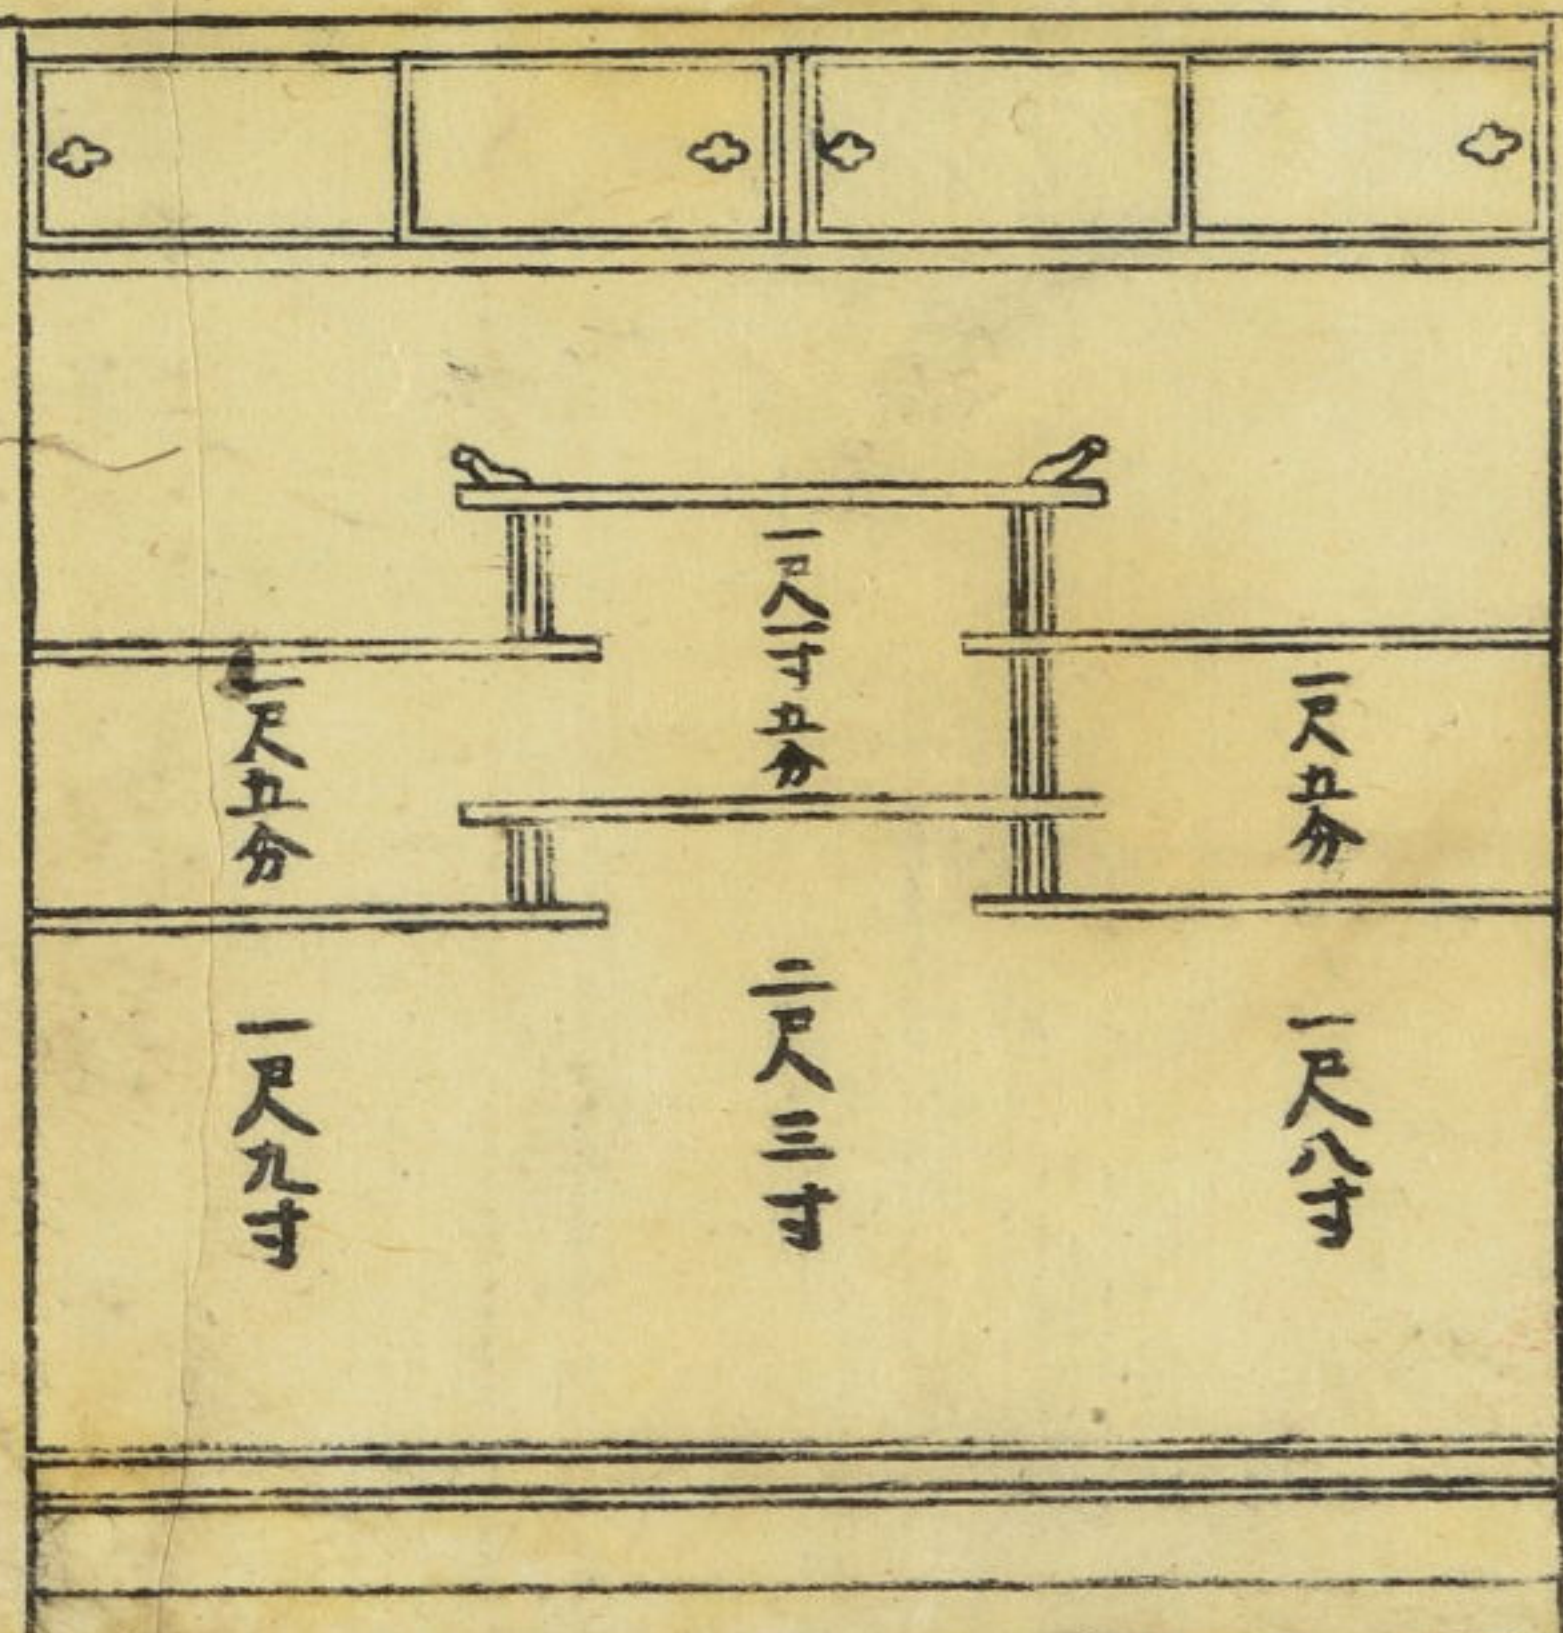 一尺五分
一尺八寸
一尺一寸五分
二尺三寸
一尺五分
一尺九寸